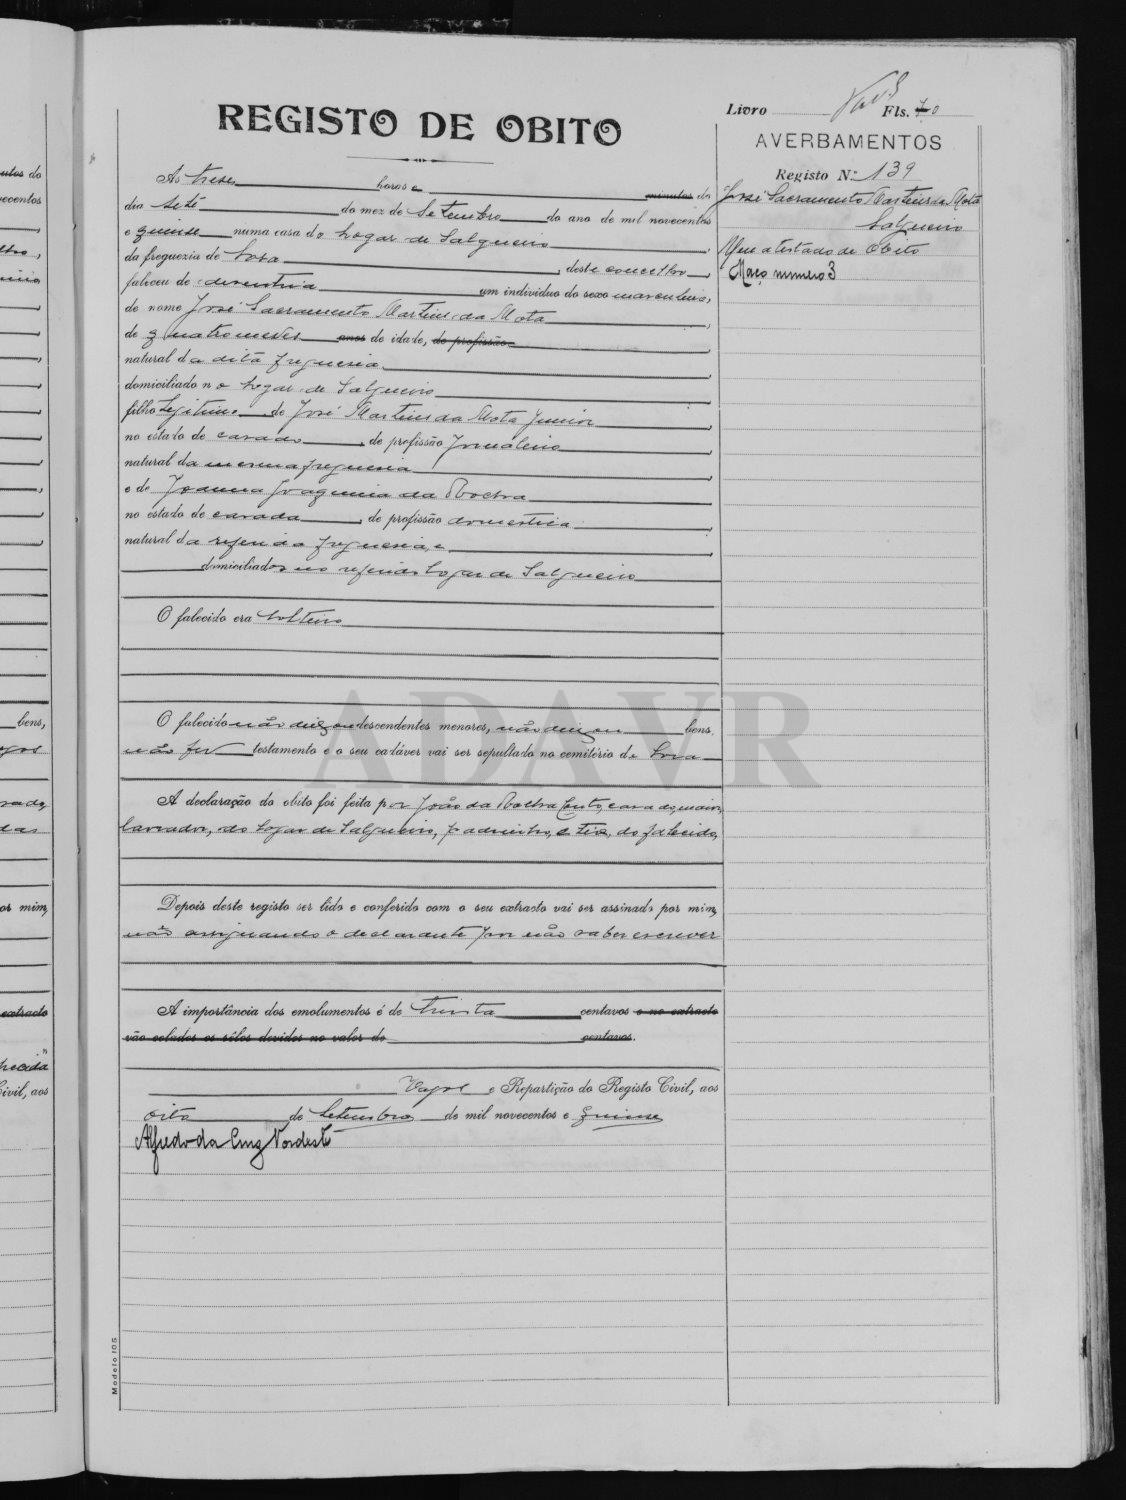 Livro Fls. 70
REGISTO DE OBITO
AVERBAMENTOS
Registo N.º 139
José Sacramento Martins da Mota
Salgueiro
Um atestado de Obito
Março numero 3
Ás trese horas e minutos do
dia sete do mez de Setembro do ano de mil novecentos
e quinse numa casa do logar de Salgueiro
da freguezia de Sosa, deste concelho,
faleceu de disentria um individuo do sexo masculino,
de nome José Sacramento Martins da Mota,
de quatro meses anos de idade, de profissão
natural da dita freguesia,
domiciliado no logar de Salgueiro
filho legitimo de José Martins da Mota Junior
no estado de casado, de profissão Jornaleiro
natural da mesma freguesia
e de Joanna Joaquina da Rocha
no estado de casada, de profissão domestica
natural da referida freguesia, e
domiciliados no referido logar de Salgueiro
O falecido era solteiro
O falecido não deixou descendentes menores, não deixou bens,
não fez testamento e o seu cadáver vai ser sepultado no cemitério de Sosa
A declaração do obito foi feita por João da Rocha, casado, maior,
lavrador, do logar de Salgueiro, padrinho, e tio, do falecido,
Depois deste registo ser lido e conferido com o seu extracto vai ser assinado por mim,
não assignando o declarante por não saber escrever
A importância dos emolumentos é de trinta centavos e no extracto
vão colados os sêlos devidos no valor de centavos.
Vagos e Repartição do Registo Civil, aos
oito de Setembro de mil novecentos e quinse
Alfredo da Cruz Nordeste
Modelo 105
ADAVR
bens,
or mim,
extracto
Civil, aos